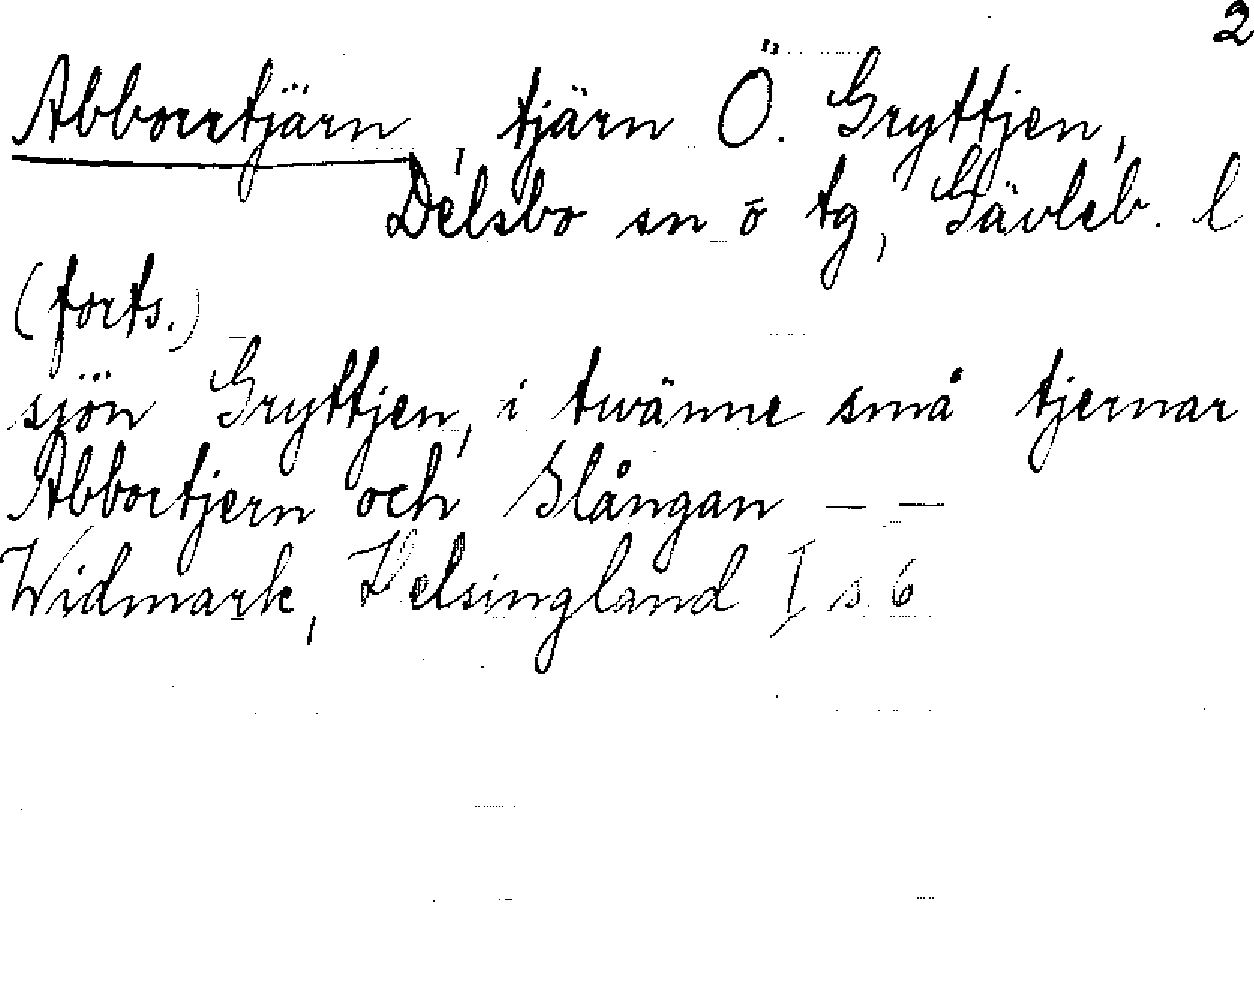 2
Abborrtjärn, tjärn Ö. Gryttjen,
Delsbo sn o tg, Gävleb. l
(forts.)
sjön Gryttjen, i twänne små tjernar
Abbortjern och Slångan — —
Widmark, Helsingland I s 6